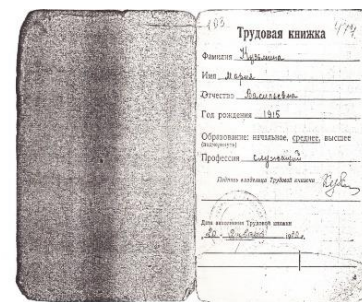 103 474
Трудовая книжка
Фамилия Кузьмина
Имя Мария
Отчество Васильевна
Год рождения 1915
Образование: начальное, среднее, высшее
(подчеркнуть)
Профессия служащий
Подпись владельца Трудовой книжки
Дата заполнения Трудовой книжки
20 января